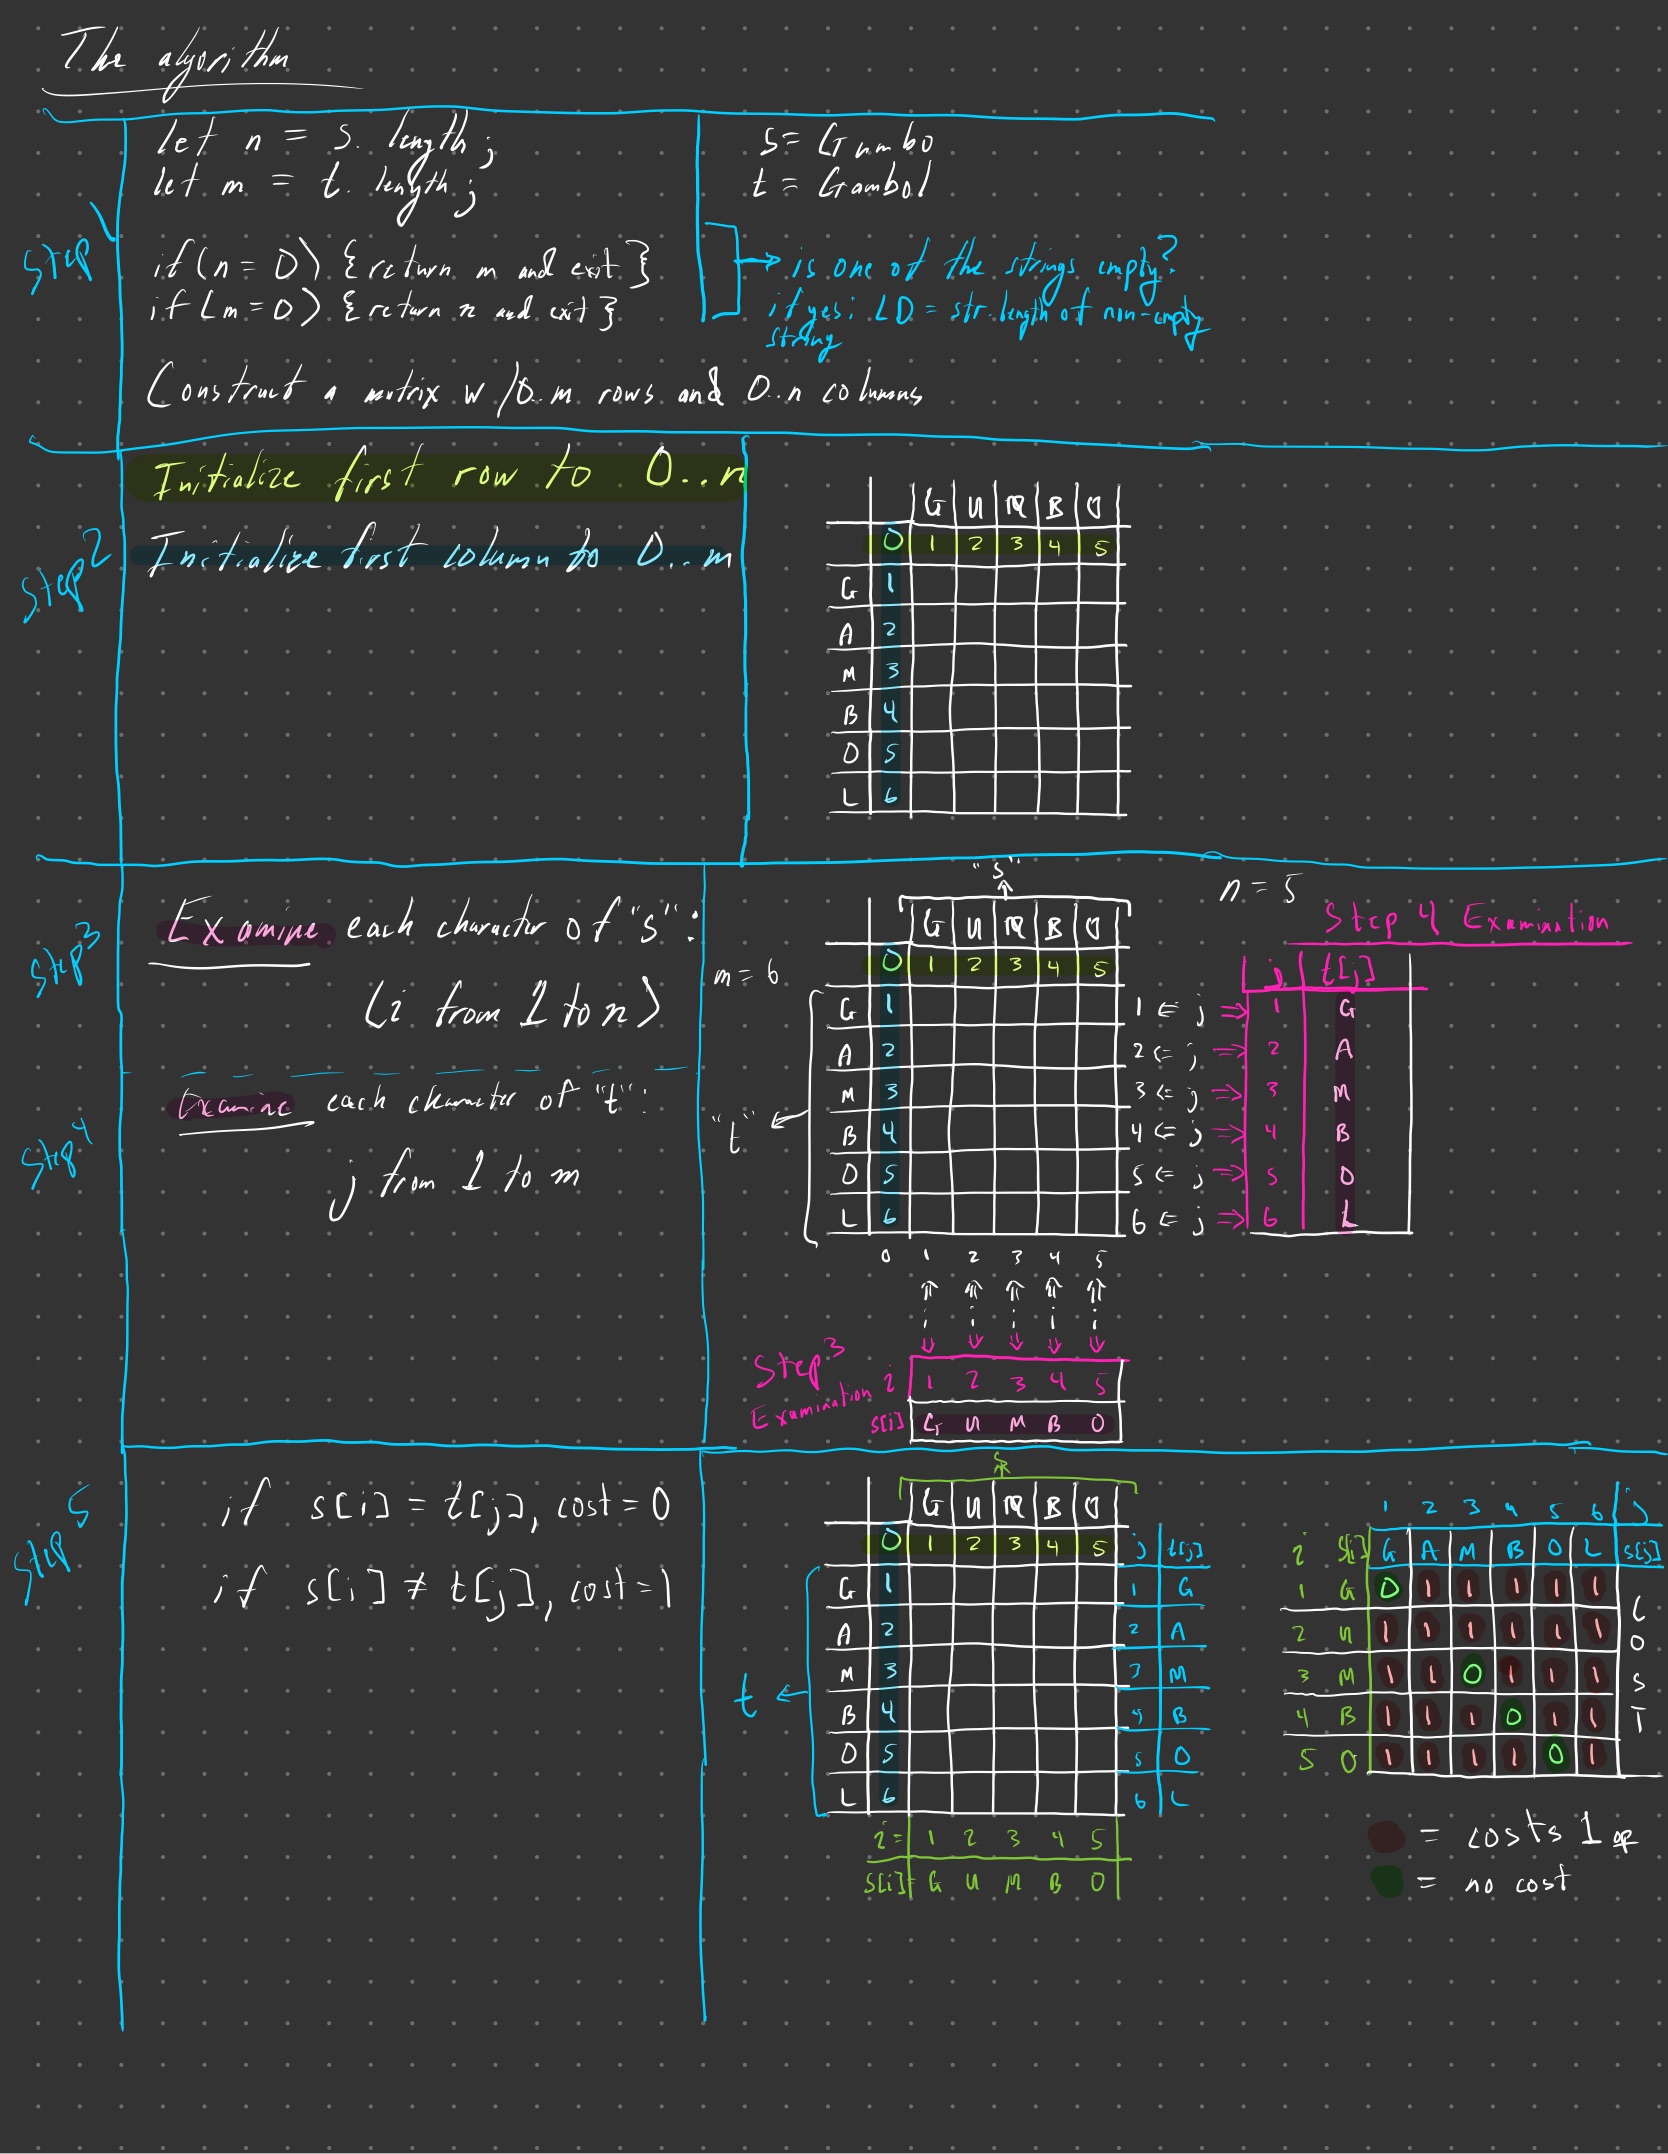 The algorithm
Step 1
let n = s. length;
let m = t. length;
if (n = 0) {return m and exit}
if (m = 0) {return n and exit}
Construct a matrix w/ 0..m rows and 0..n columns
s = Gumbo
t = Gambol
is one of the strings empty?
if yes: LD = str.length of non-empty
string
Step 2
Initialize first row to 0..n
Initialize first column to 0..m
G U M B O
0 1 2 3 4 5
G 1
A 2
M 3
B 4
O 5
L 6
Step 3
Examine each character of "s":
(i from 1 to n)
Step 4
Examine each character of "t":
j from 1 to m
"s"
n = 5
m = 6
"t"
G U M B O
0 1 2 3 4 5
G 1 1 ⇐ j ⇒
A 2 2 ⇐ j ⇒
M 3 3 ⇐ j ⇒
B 4 4 ⇐ j ⇒
O 5 5 ⇐ j ⇒
L 6 6 ⇐ j ⇒
0 1 2 3 4 5
Step 4 Examination
j t[j]
1 G
2 A
3 M
4 B
5 O
6 L
Step 3
Examination
i 1 2 3 4 5
s[i] G U M B O
Step 5
if s[i] = t[j], cost = 0
if s[i] ≠ t[j], cost = 1
s
t
G U M B O
0 1 2 3 4 5 j t[j]
G 1 1 G
A 2 2 A
M 3 3 M
B 4 4 B
O 5 5 O
L 6 6 L
i = 1 2 3 4 5
s[i]= G U M B O
1 2 3 4 5 6 j
i s[i] G A M B O L s[j]
1 G 0 1 1 1 1 1
2 U 1 1 1 1 1 1
3 M 1 1 0 1 1 1
4 B 1 1 1 0 1 1
5 O 1 1 1 1 0 1
COST
= costs 1 op
= no cost